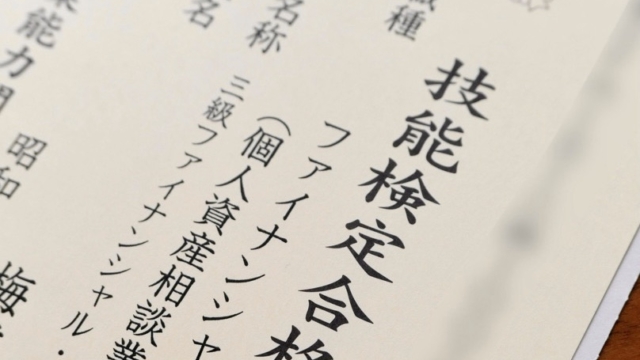 技能検定合格
種 ファイナンシャ
(個人資産相談業
名称 三級ファイナンシャル・
名
能力
昭和
梅